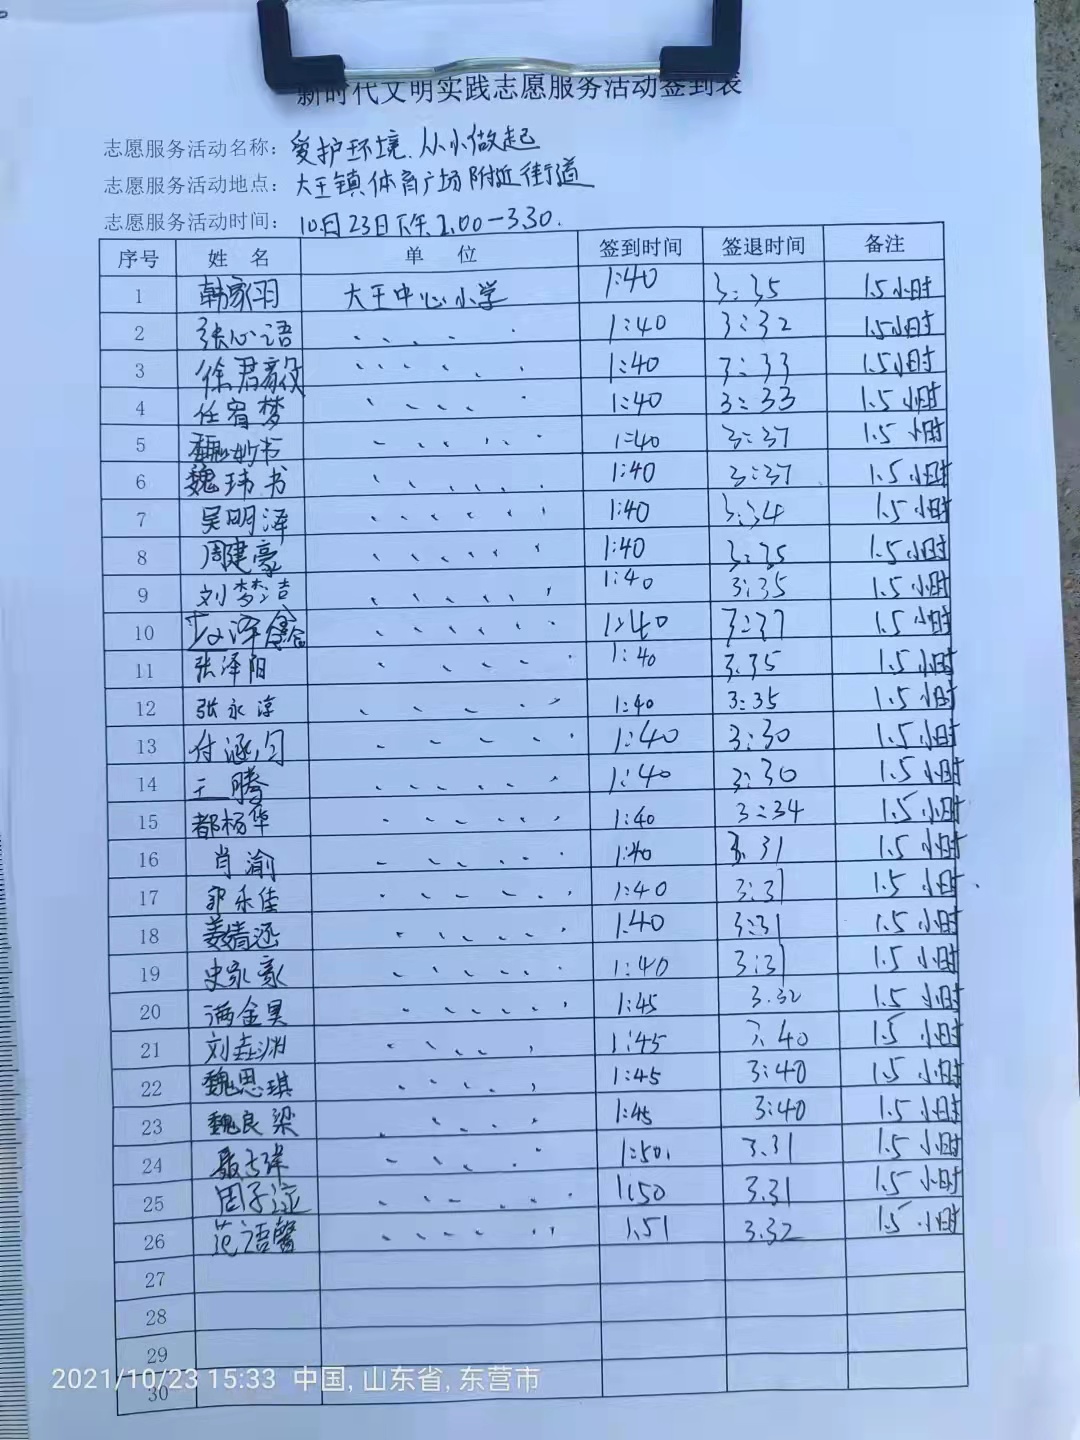 新时代文明实践志愿服务活动签到表
志愿服务活动名称：爱护环境.从小做起
志愿服务活动地点：大王镇体育广场附近街道
志愿服务活动时间：10月23日下午2:00-3:30.
序号 姓 名 单 位 签到时间 签退时间 备注
1 韩家羽 大王中心小学 1:40 3:35 1.5小时
2 张心语 1:40 3:32 1.5小时
3 徐君毅 1:40 3:33 1.5小时
4 任宥梦 1:40 3:33 1.5小时
5 魏妙书 1:40 3:37 1.5小时
6 魏玮书 1:40 3:37 1.5小时
7 吴明泽 1:40 3:34 1.5小时
8 周建豪 1:40 3:35 1.5小时
9 刘梦洁 1:40 3:35 1.5小时
10 1:40 3:37 1.5小时
11 张泽阳 1:40 3.35 1.5小时
12 张永淳 1:40 3:35 1.5小时
13 付涵匀 1:40 3:30 1.5小时
14 王腾 1:40 3:30 1.5小时
15 都杨华 1:40 3:34 1.5小时
16 肖渝 1:40 3.31 1.5小时
17 郭乐佳 1:40 3:31 1.5小时
18 姜婧涵 1:40 3:31 1.5小时
19 史家豪 1:40 3:31 1.5小时
20 满金昊 1:45 3.32 1.5小时
21 刘垚渊 1:45 3.40 1.5小时
22 魏思琪 1:45 3:40 1.5小时
23 魏良梁 1:45 3:40 1.5小时
24 1:50 3.31 1.5小时
25 周子 1:50 3.31 1.5小时
26 范语馨 1.51 3.32 1.5小时
27
28
29
2021/10/23 15:33 中国,山东省,东营市
30